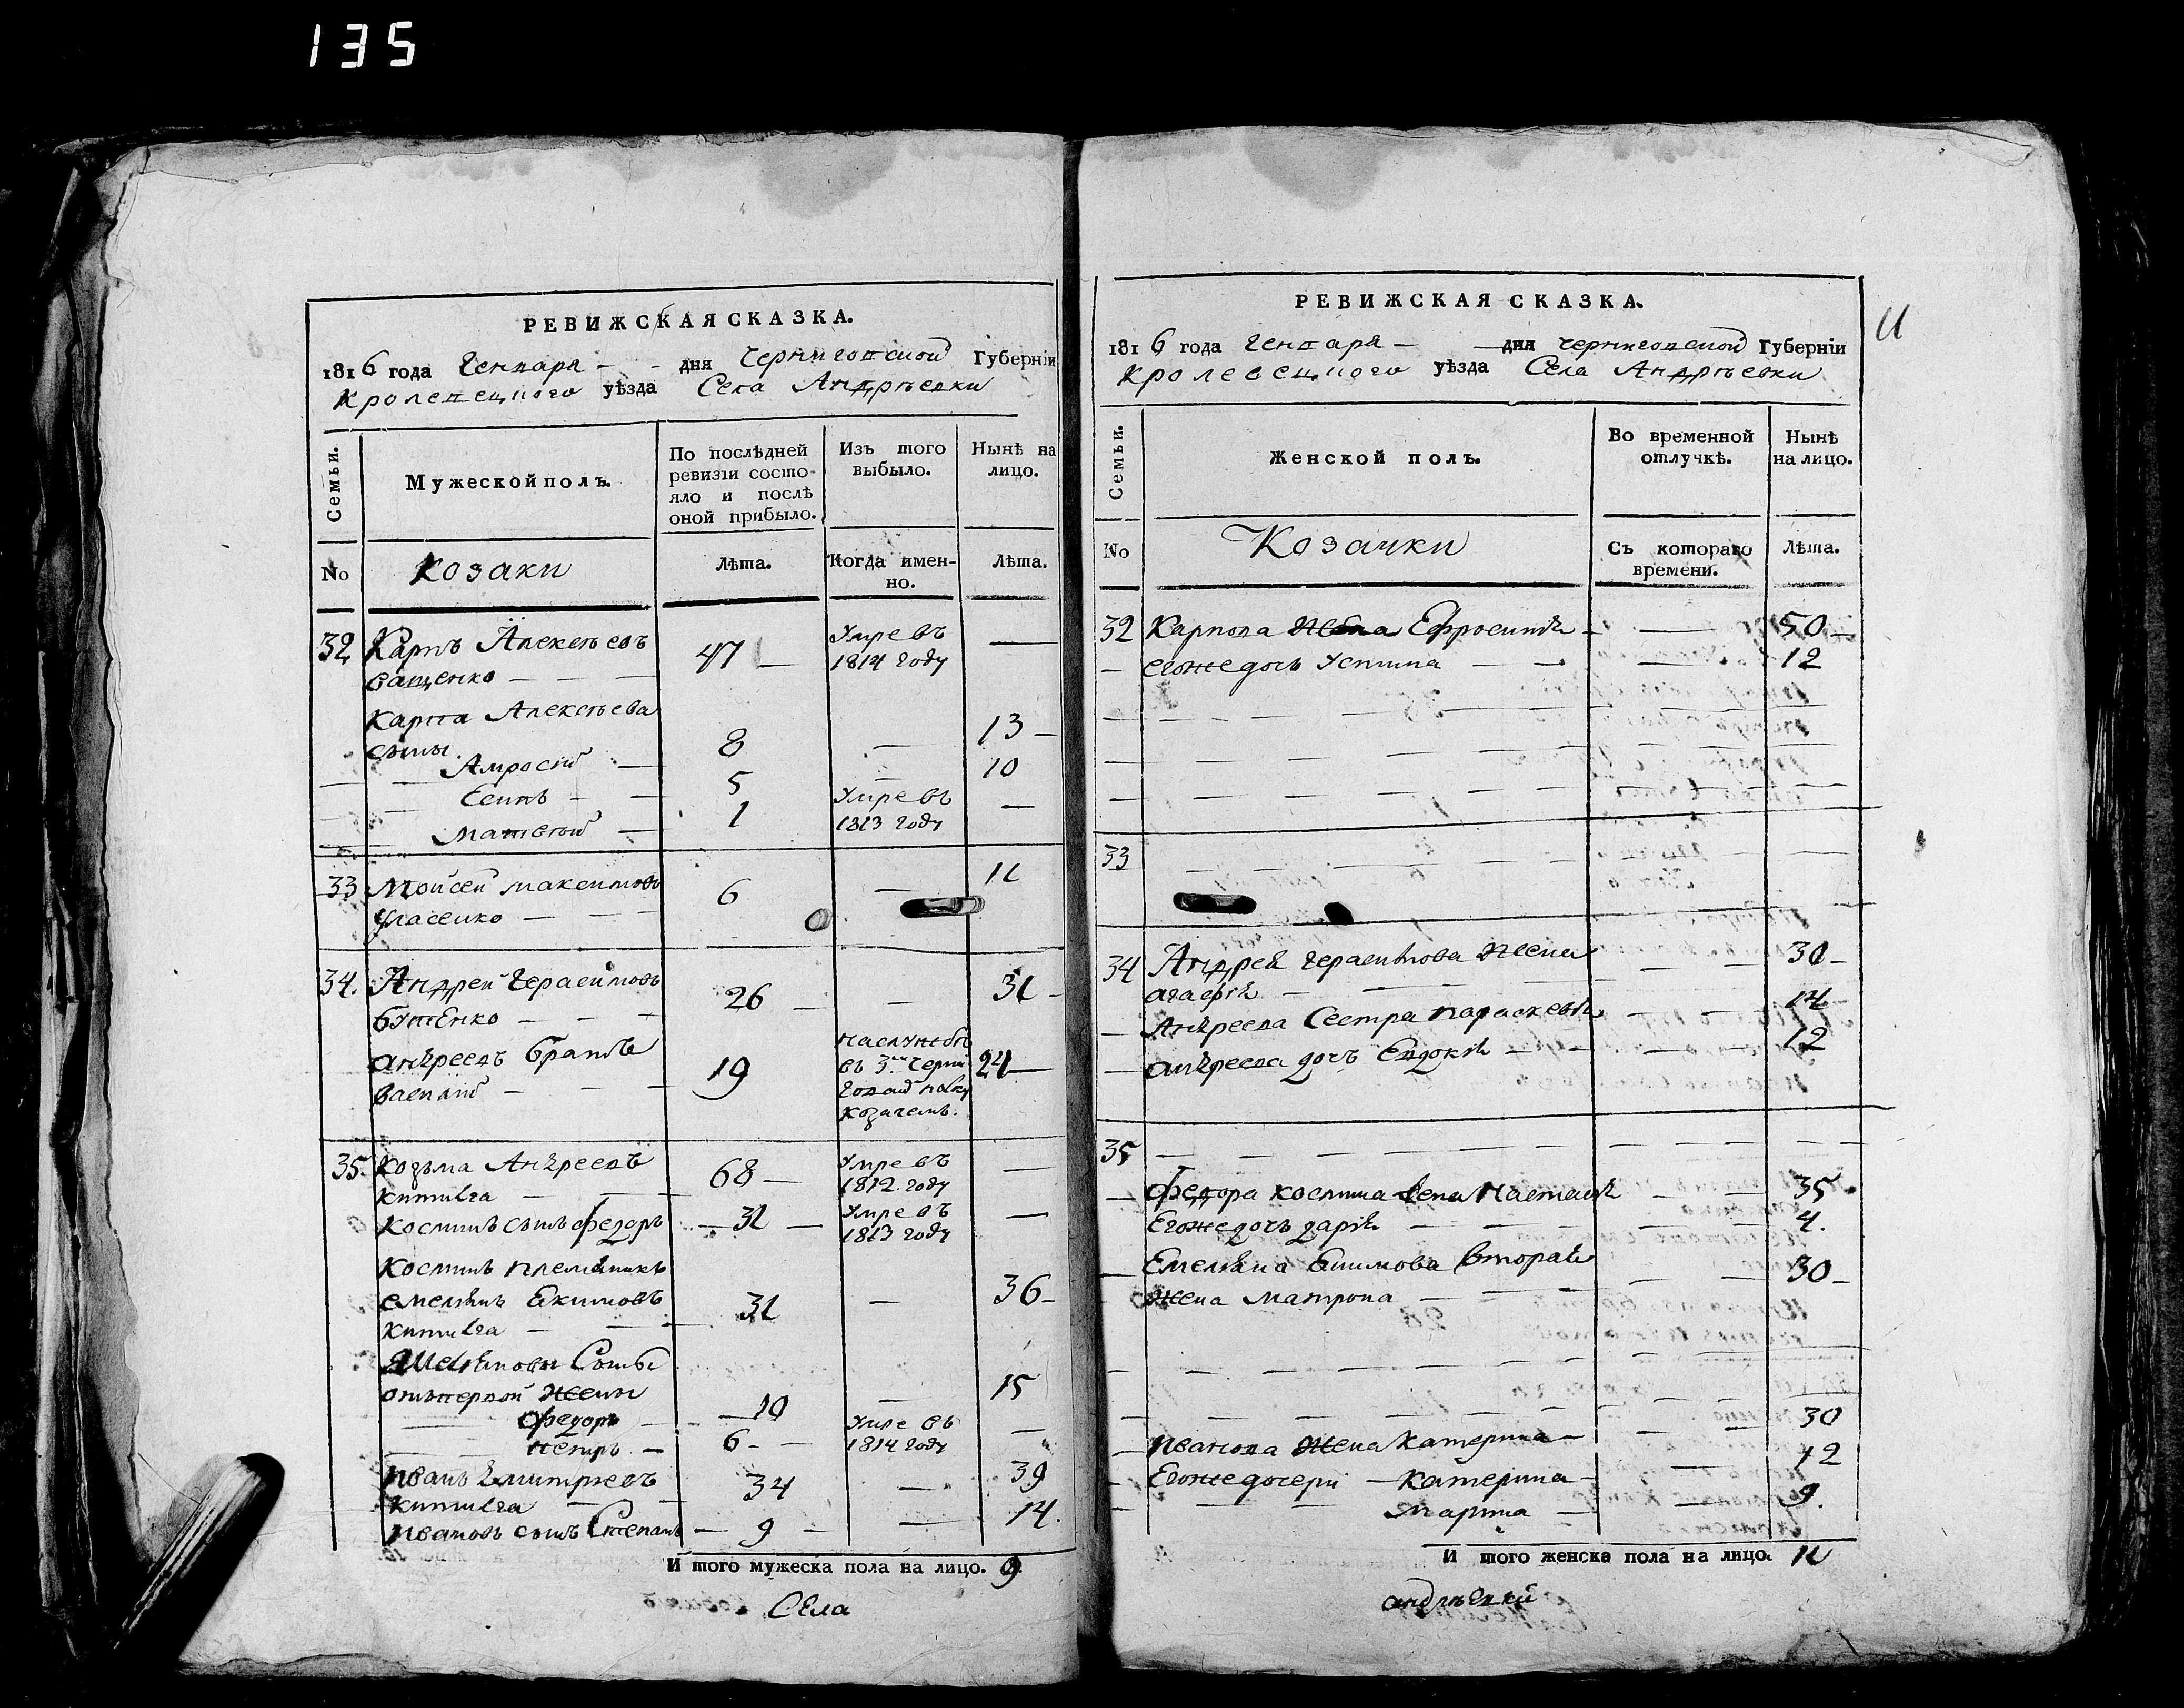 135
РЕВИЖСКАЯ СКАЗКА.
1816 года Генваря дня Черниговской Губернiи
Кролевецкого уѣзда Села Андрѣевки
Семьи.
Мужеской полъ.
По послѣдней ревизiи состо-
яло и послѣ
оной прибыло.
Изъ того
выбыло.
Нынѣ на
лицо.
No
Козаки
Лѣта.
Когда имен-
но.
Лѣта.
32 Карпъ Алексѣевъ 47 Умре въ
Сащенко 1814 году
Карпа Алексѣева
сыны
Амросiй 8 13
Есипъ 5 10
Матвѣй 1 Умре въ
1813 году
33 Мойсей Максимовъ 6 11
34. Андрей Герасимовъ 26 31
Бутенко
Андреевъ братъ 19 на службѣ 24
Василiй въ 3м Черни
говском полку
козачемъ.
35. Козьма Андреевъ 68 Умре въ
Китшга 1812 году
Косминъ сынъ Федоръ 31 Умре въ
1813 году
Косминъ племянникъ
Емелянъ Екимовъ 31 36
Емеляновы Сыны
отъ первой жены
Федоръ 10 15
Петръ 6 Умре въ
1814 году
Иванъ Дмитрiевъ 34 39
Ивановъ сынъ Степанъ 9 14.
И того мужеска пола на лицо. 9
Села
РЕВИЖСКАЯ СКАЗКА.
11
1816 года Генваря дня Черниговской Губернiи
Кролевецкого уѣзда Села Андрѣевки
Семьи.
Женской полъ.
Во временной
отлучкѣ.
Нынѣ
на лицо.
No
Козачки
Съ котораго
времени.
Лѣта.
32 Карпова жена Ефросинiя 50
егоже дочь Устина 12
33
34 Андрея Герасимова жена 30
Агафiя
Андреева Сестра Параскевiя 14
Андреева дочъ Евдокiя 12
35
Федора Космина жена Настасiя 35
Егоже дочъ Дарiя 4.
Емеляна Екимова вторая 30
жена Матрона
Иванова жена Катерина 30
Егоже дочери Катерина 12
Марина 9.
И того женска пола на лицо. 11
Андрѣевки